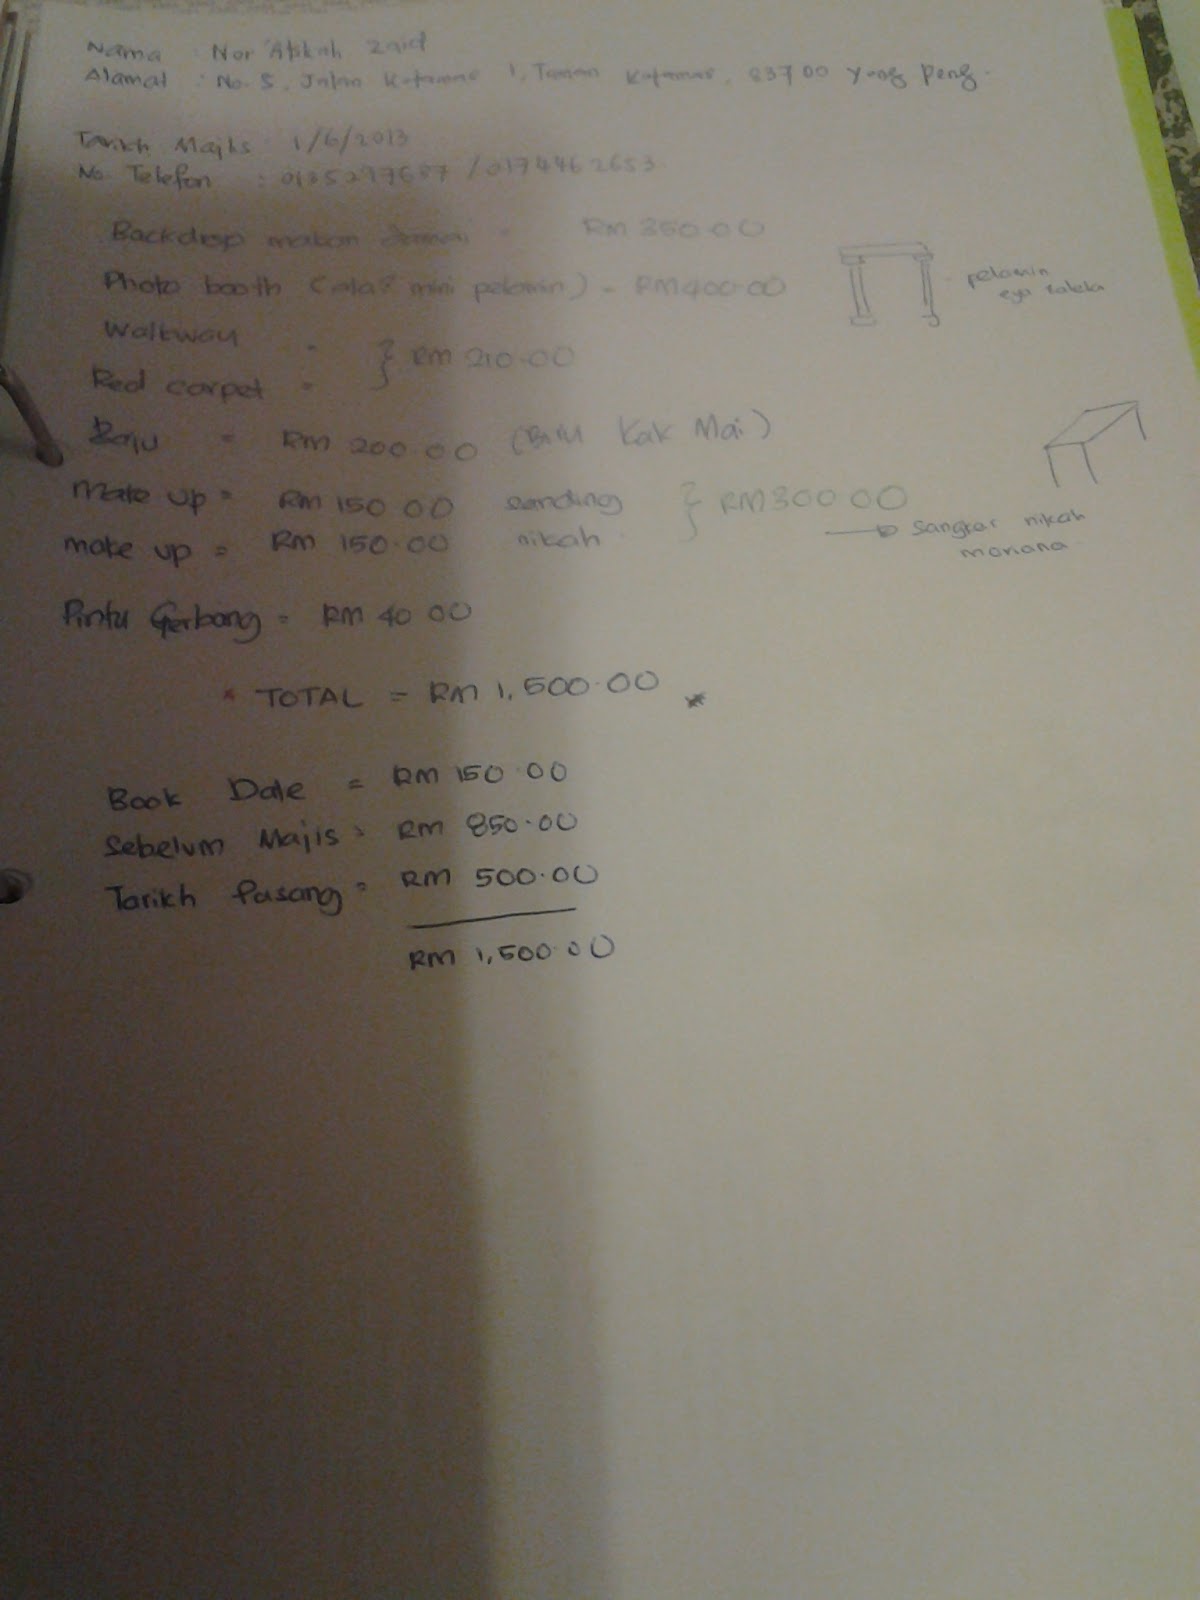 Nama : Nor Atikah Zaid
Alamat : No. 5, Jalan Kotamas 1, Taman Kotamas, 83700 Yong Peng.
Tarikh Majlis 1/6/2013
No. Telefon : /0174462653
Backdrop makan = RM 350.00
Photo booth (ala2 mini pelamin) = RM400.00
pelamin
Walkway =
} RM 210.00
Red carpet =
Baju = RM 200.00 (Biru Kak Mai)
Make up = RM 150.00 sanding } RM300.00
make up = RM 150.00 nikah
→ Sangkar nikah
Pintu Gerbang = RM 40.00
* TOTAL = RM 1,500.00 *
Book Date = RM 150.00
Sebelum Majlis = RM 850.00
Tarikh Pasang = RM 500.00
RM 1,500.00